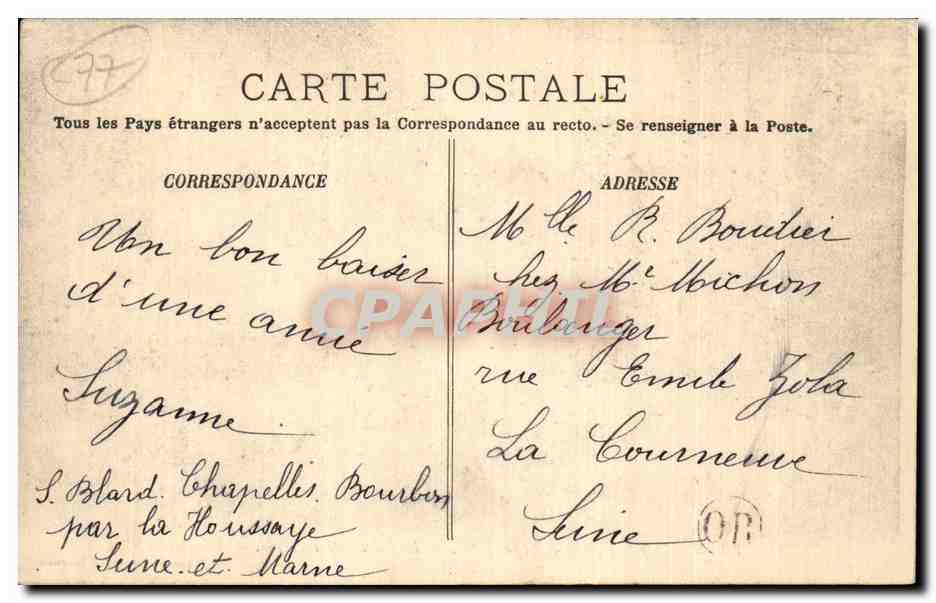 77
CARTE POSTALE
Tous les Pays étrangers n'acceptent pas la Correspondance au recto. - Se renseigner à la Poste.
CORRESPONDANCE
Un bon baiser
d'une amie
Suzanne.
S. Blard. Chapelles. Bourbon
par la Houssaye
Seine-et-Marne
ADRESSE
Mlle R. Boudier
chez Mr Michon
Boulanger
rue Emile Zola
La Courneuve
Seine
OR
CPAPHIL